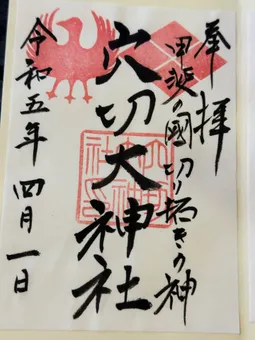 奉拝
甲斐の國切り拓きの神
穴切大神社
令和五年 四月一日